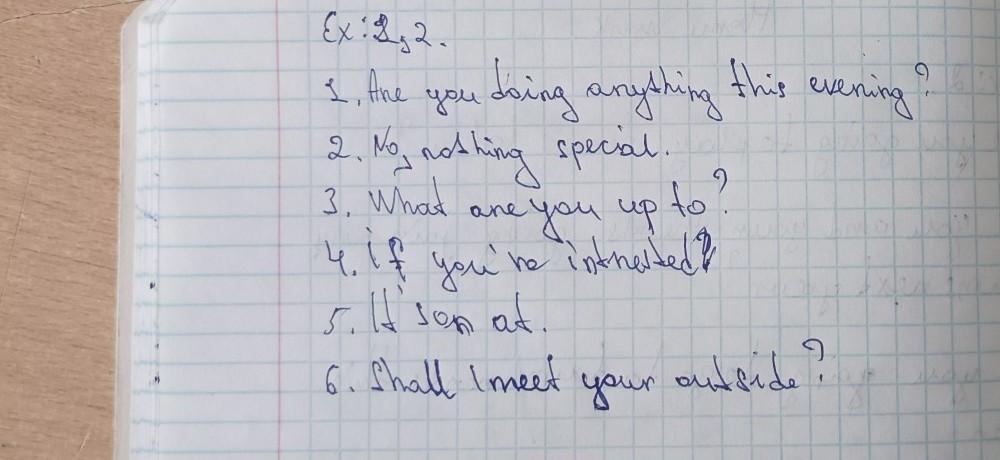 Ex: 2, 2.
1. Are you doing anything this evening?
2. No, nothing special.
3. What are you up to?
4. if you're intrested?
5. It's on at.
6. Shall I meet your outside?